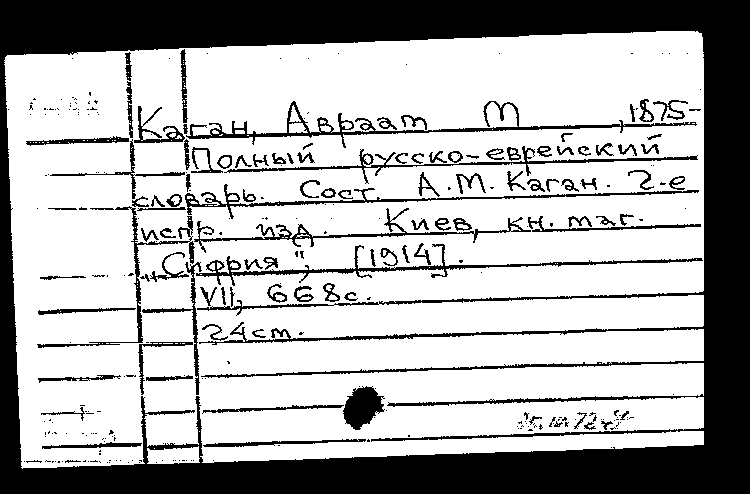 Каган, Авраам М , 1875-
Полный русско-еврейский
словарь. Сост. А.М. Каган. 2-е
испр. изд. Киев, кн. маг.
„Сифрия", [1914].
VII, 668с.
24cm.